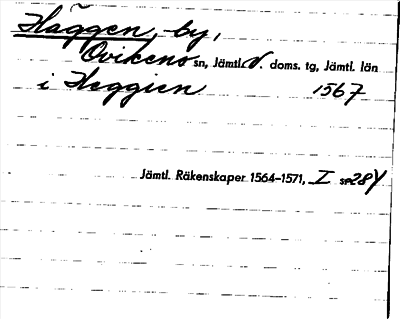 Häggen, by,
Ovikens sn, Jämtl. V. doms. tg, Jämtl. län
i Heggien 1567
Jämtl. Räkenskaper 1564-1571, I